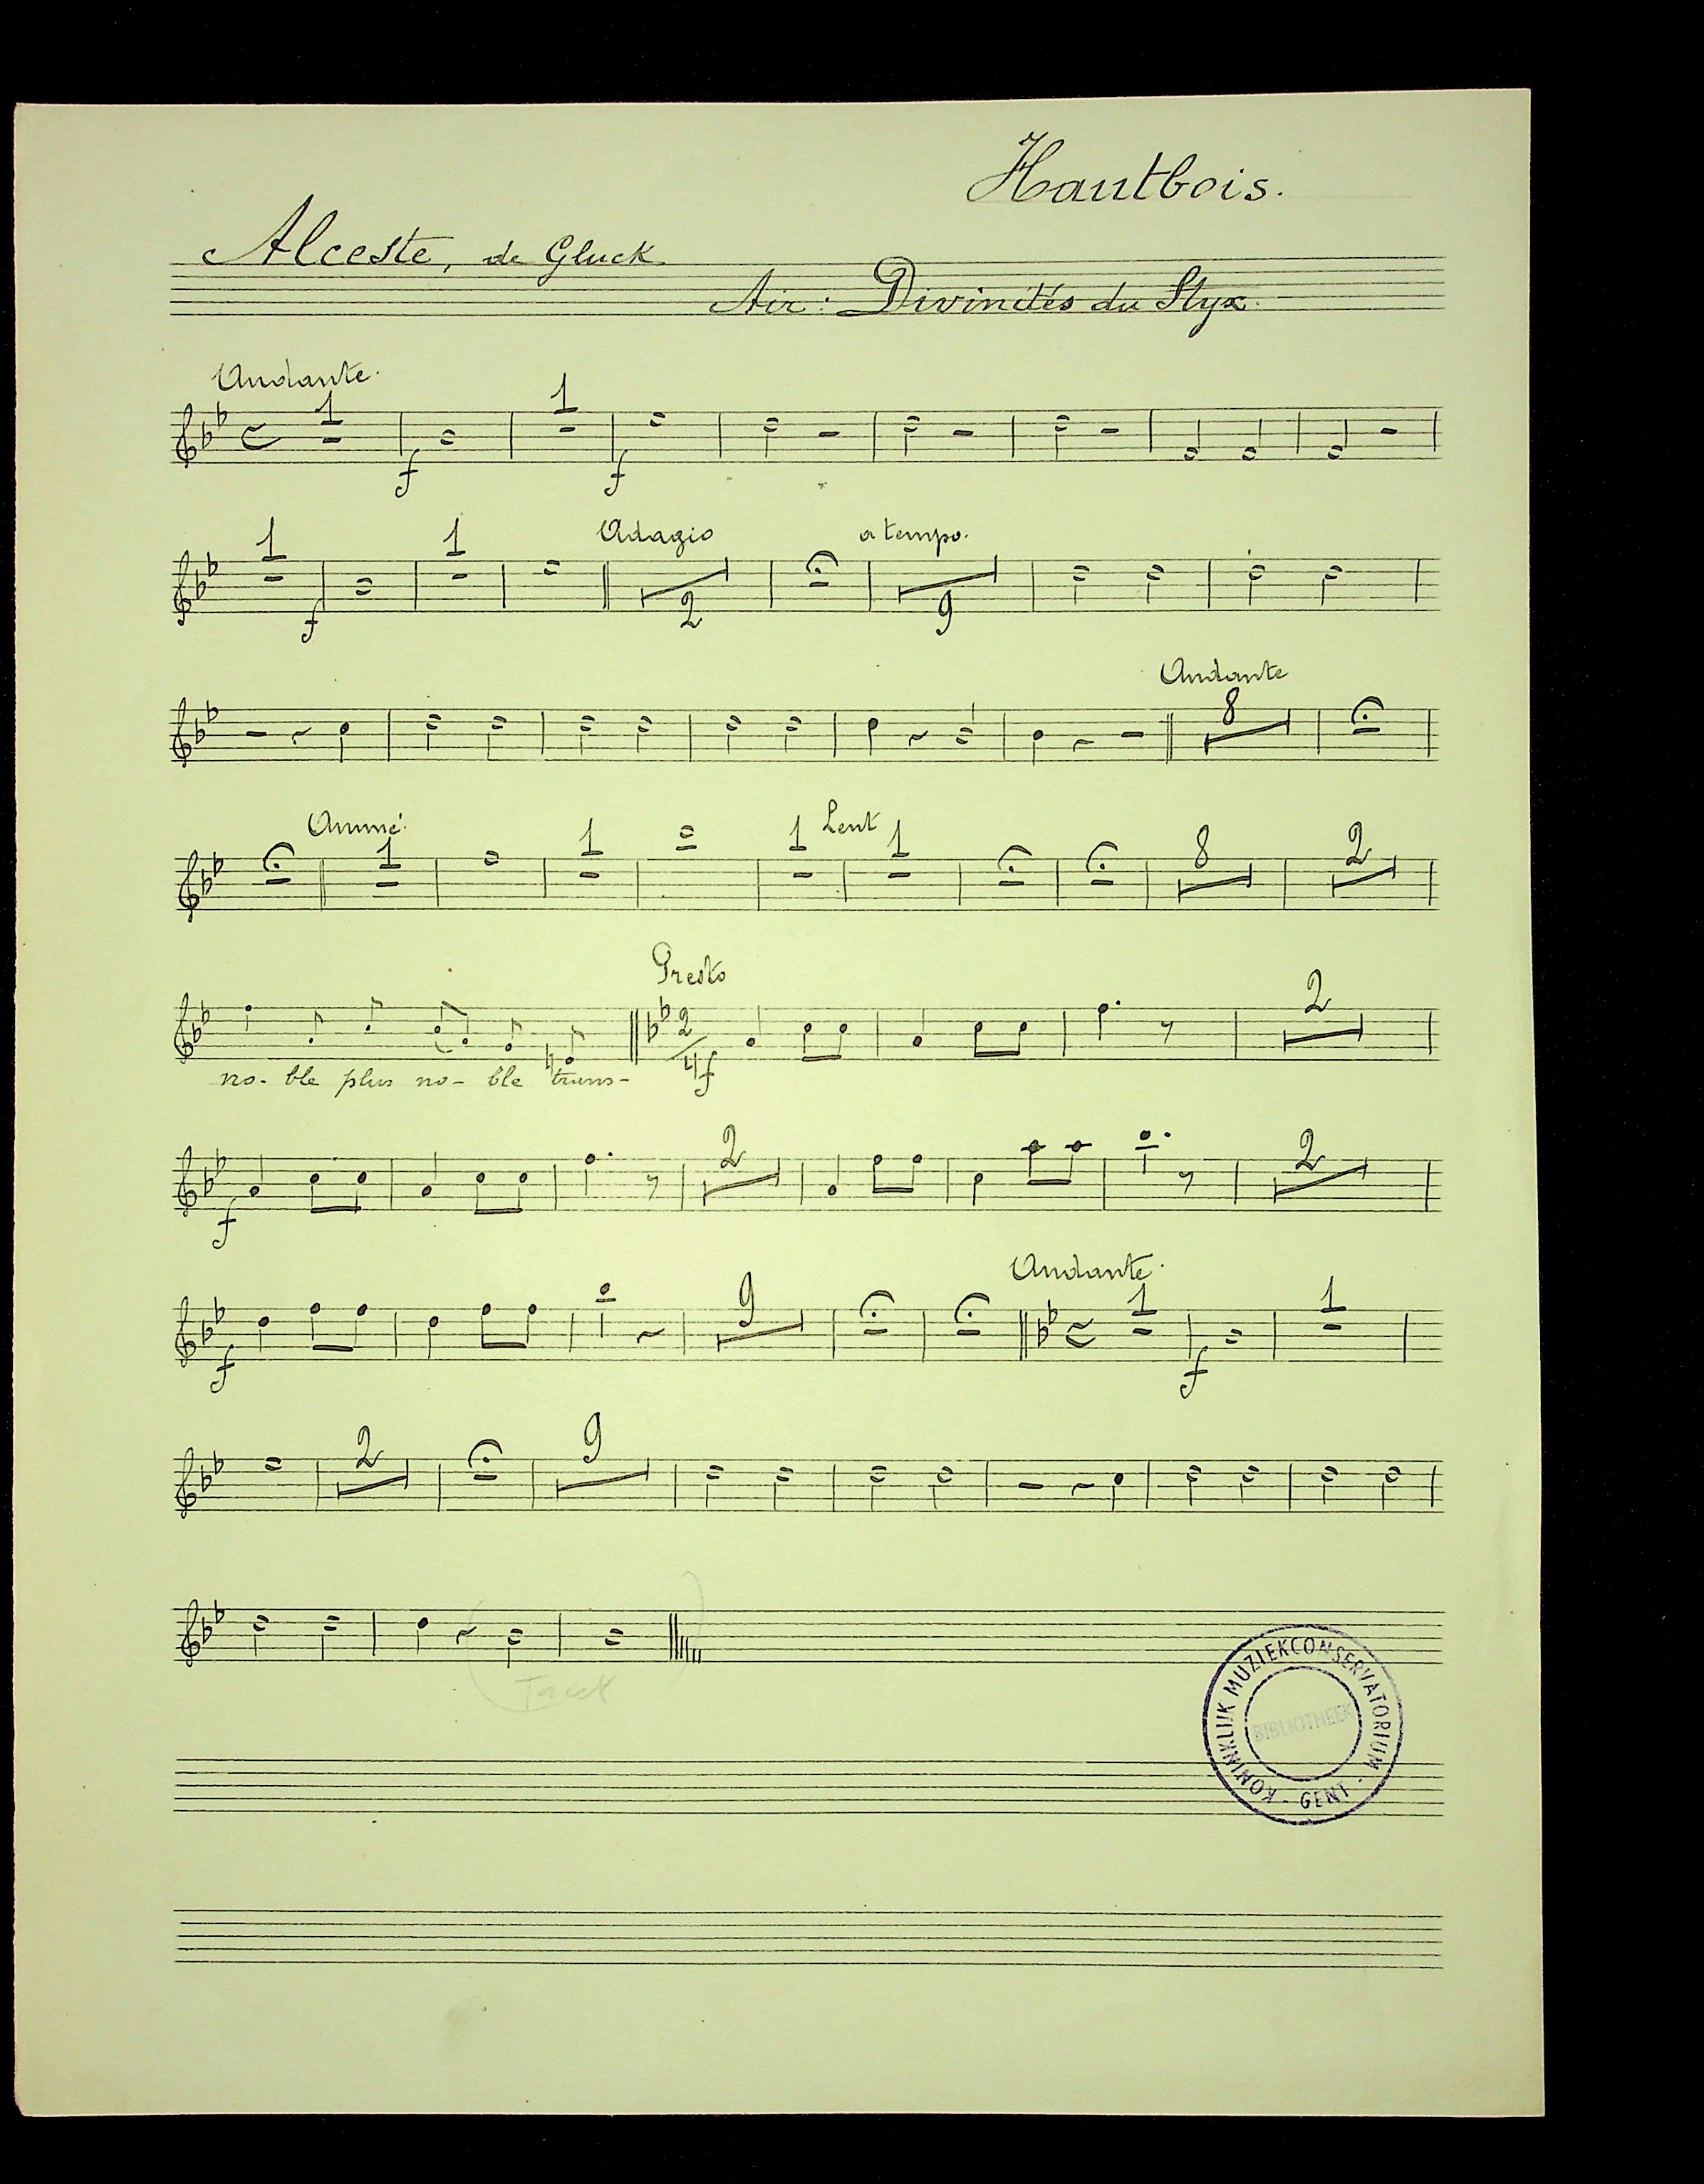 Hautbois.
Alceste, de Gluck
Air: Divinités du Styx.
Andante.
1 1
f f
1 1 Adagio a tempo.
f 2 9
Andante
8
Animé. Lent
1 1 1 1 8 2
Presto
2
2 4 f
no- ble plus no- ble trans-
2 2
f
Andante.
9 1 1
f f
2 9
Tacet
KONINKLIJK MUZIEKCONSERVATORIUM - GENT -
BIBLIOTHEEK